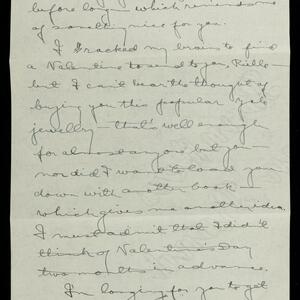 before long which reminds me
of something nice for you.
I cracked my brain to find
a Valentine to send to you,
but I can't bear the thought of
buying you this popular
jewelry — that's well enough
for almost anyone but you —
nor did I want to load you
down with another book —
which gives me another idea.
I must admit that I didn't
think of Valentine's Day
two months in advance.
I'm longing for you to get